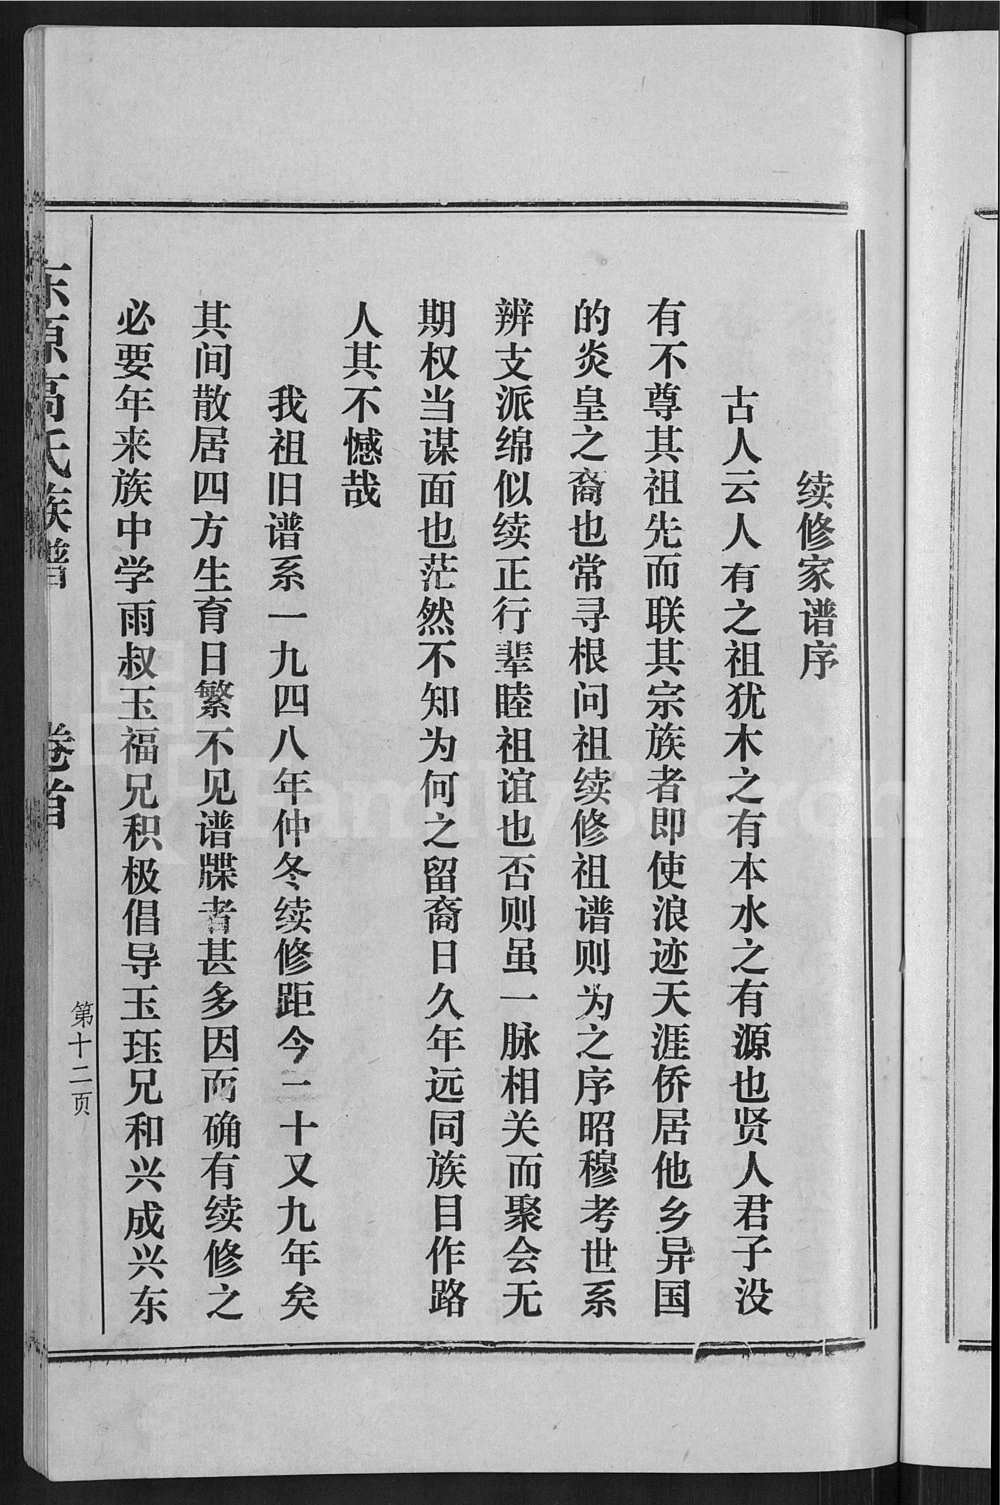 续修家谱序
古人云人有之祖犹木之有本水之有源也贤人君子没
有不尊其祖先而联其宗族者即使浪迹天涯侨居他乡异国
的炎皇之裔也常寻根问祖续修祖谱则为之序昭穆考世系
辨支派绵似续正行辈睦祖谊也否则虽一脉相关而聚会无
期权当谋面也茫然不知为何之留裔日久年远同族目作路
人其不憾哉
我祖旧谱系一九四八年仲冬续修距今二十又九年矣
其间散居四方生育日繁不见谱牒者甚多因而确有续修之
必要年来族中学雨叔玉福兄积极倡导玉珏兄和兴成兴东
东原高氏族谱 卷首
第十二页
FamilySearch